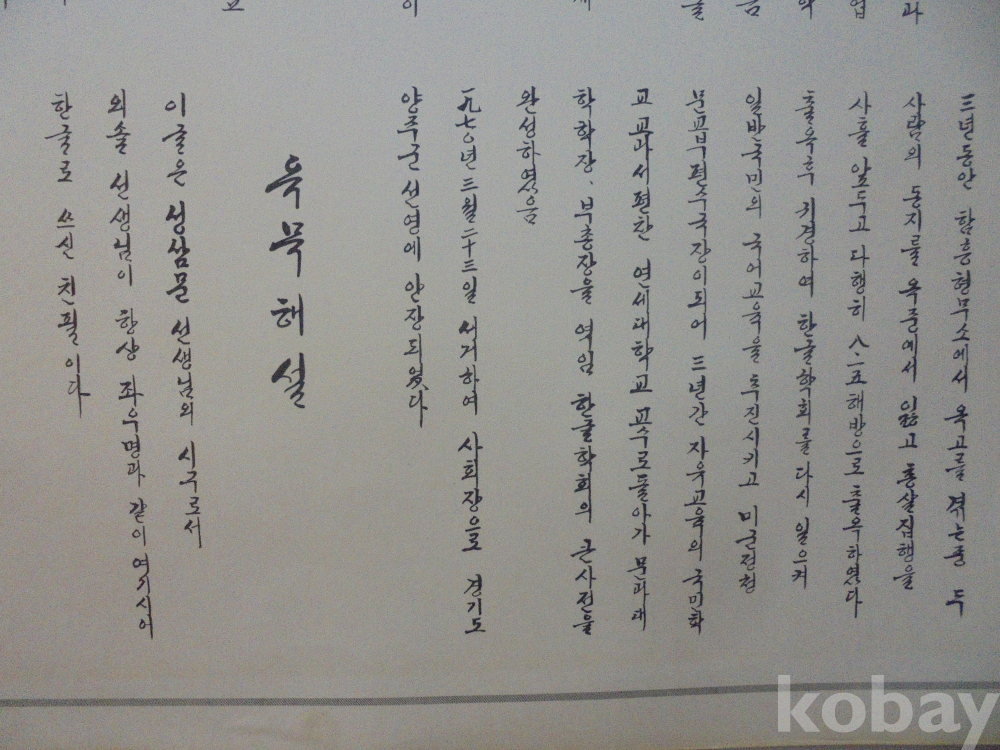 과
업
의
금
을
이
교
三년동안 함흥형무소에서 옥고를 겪는중 두
사람의 동지를 옥중에서 잃고 총살집행을
사흘 앞두고 다행히 八·一五해방으로 출옥하였다
출옥후 귀경하여 한글학회를 다시 일으켜
일반국민의 국어교육을 추진시키고 미군정청
문교부편수국장이되어 三년간 자유교육의 국미화
교 교과서편찬 연세대학교 교수로돌아가 문과대
학학장、부총장을 역임 한글학회의 큰사전을
완성하였음
一九七○년 三월二十三일 서거하여 사회장으로 경기도
양주군 선영에 안장되었다
육묵해설
이글은 성삼문 선생님의 시구로서
외솔 선생님이 항상 좌우명과 같이 여기시어
한글로 쓰신 친필이다
kobay